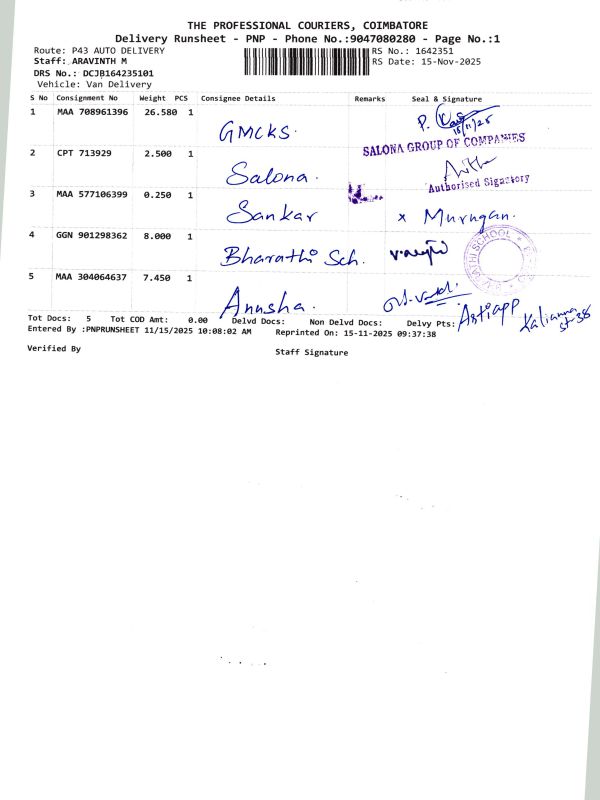 THE PROFESSIONAL COURIERS, COIMBATORE
Delivery Runsheet - PNP - Phone No.:9047080280 - Page No.:1
Route: P43 AUTO DELIVERY RS No.: 1642351
Staff: ARAVINTH M RS Date: 15-Nov-2025
DRS No.: DCJB164235101
Vehicle: Van Delivery
S No Consignment No Weight PCS Consignee Details Remarks Seal & Signature
1 MAA 708961396 26.580 1 GMCKS. P. 15/11/25
SALONA GROUP OF COMPANIES
2 CPT 713929 2.500 1 Salona.
Authorised Signatory
3 MAA 577106399 0.250 1 Sankar x Murugan.
4 GGN 901298362 8.000 1 Bharathi Sch. BHARATHI SCHOOL
5 MAA 304064637 7.450 1 Anusha.
Tot Docs: 5 Tot COD Amt: 0.00 Delvd Docs: Non Delvd Docs: Delvy Pts:
Entered By :PNPRUNSHEET 11/15/2025 10:08:02 AM Reprinted On: 15-11-2025 09:37:38
Verified By Staff Signature